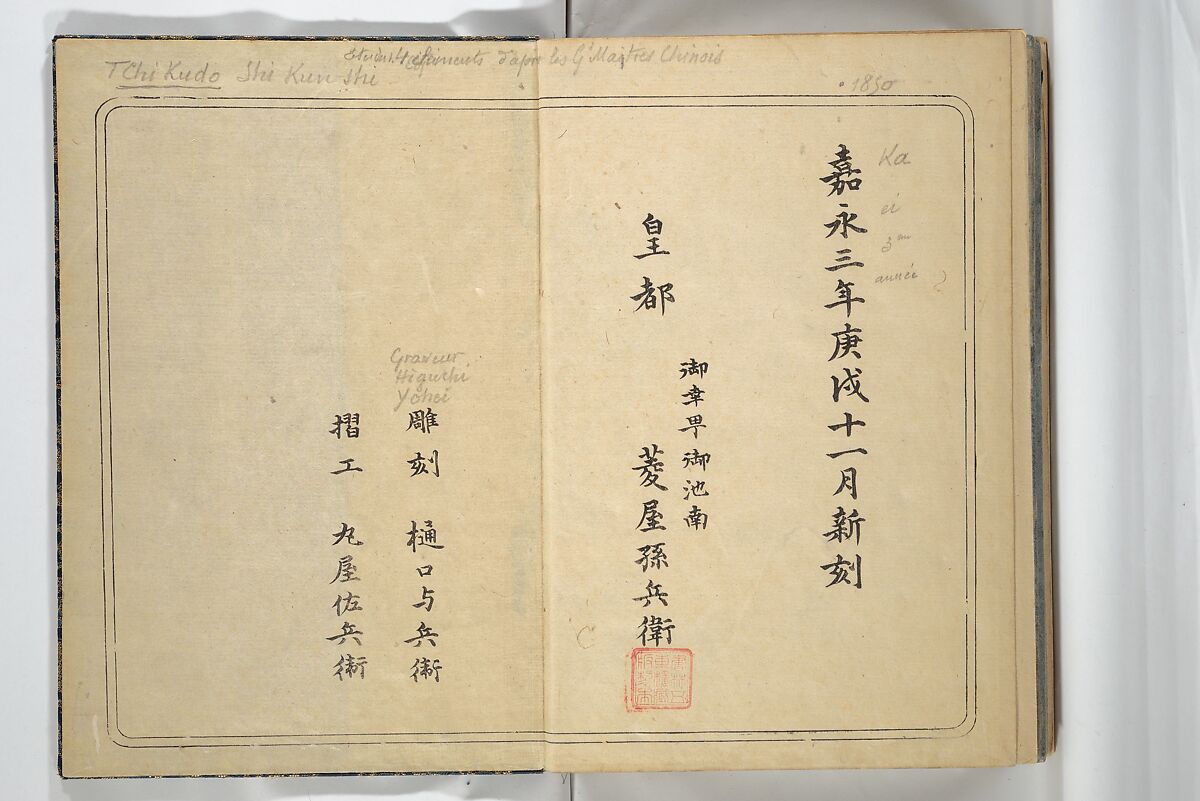 TChiKudo Shi Kun shi
d'après les Gds Maîtres Chinois
1850
嘉永三年庚戌十一月新刻
Ka
ei
3me
année
皇都
御幸町御池南
菱屋孫兵衛
Graveur
Higuchi
Yohei
雕刻 樋口与兵衛
摺工 丸屋佐兵衛